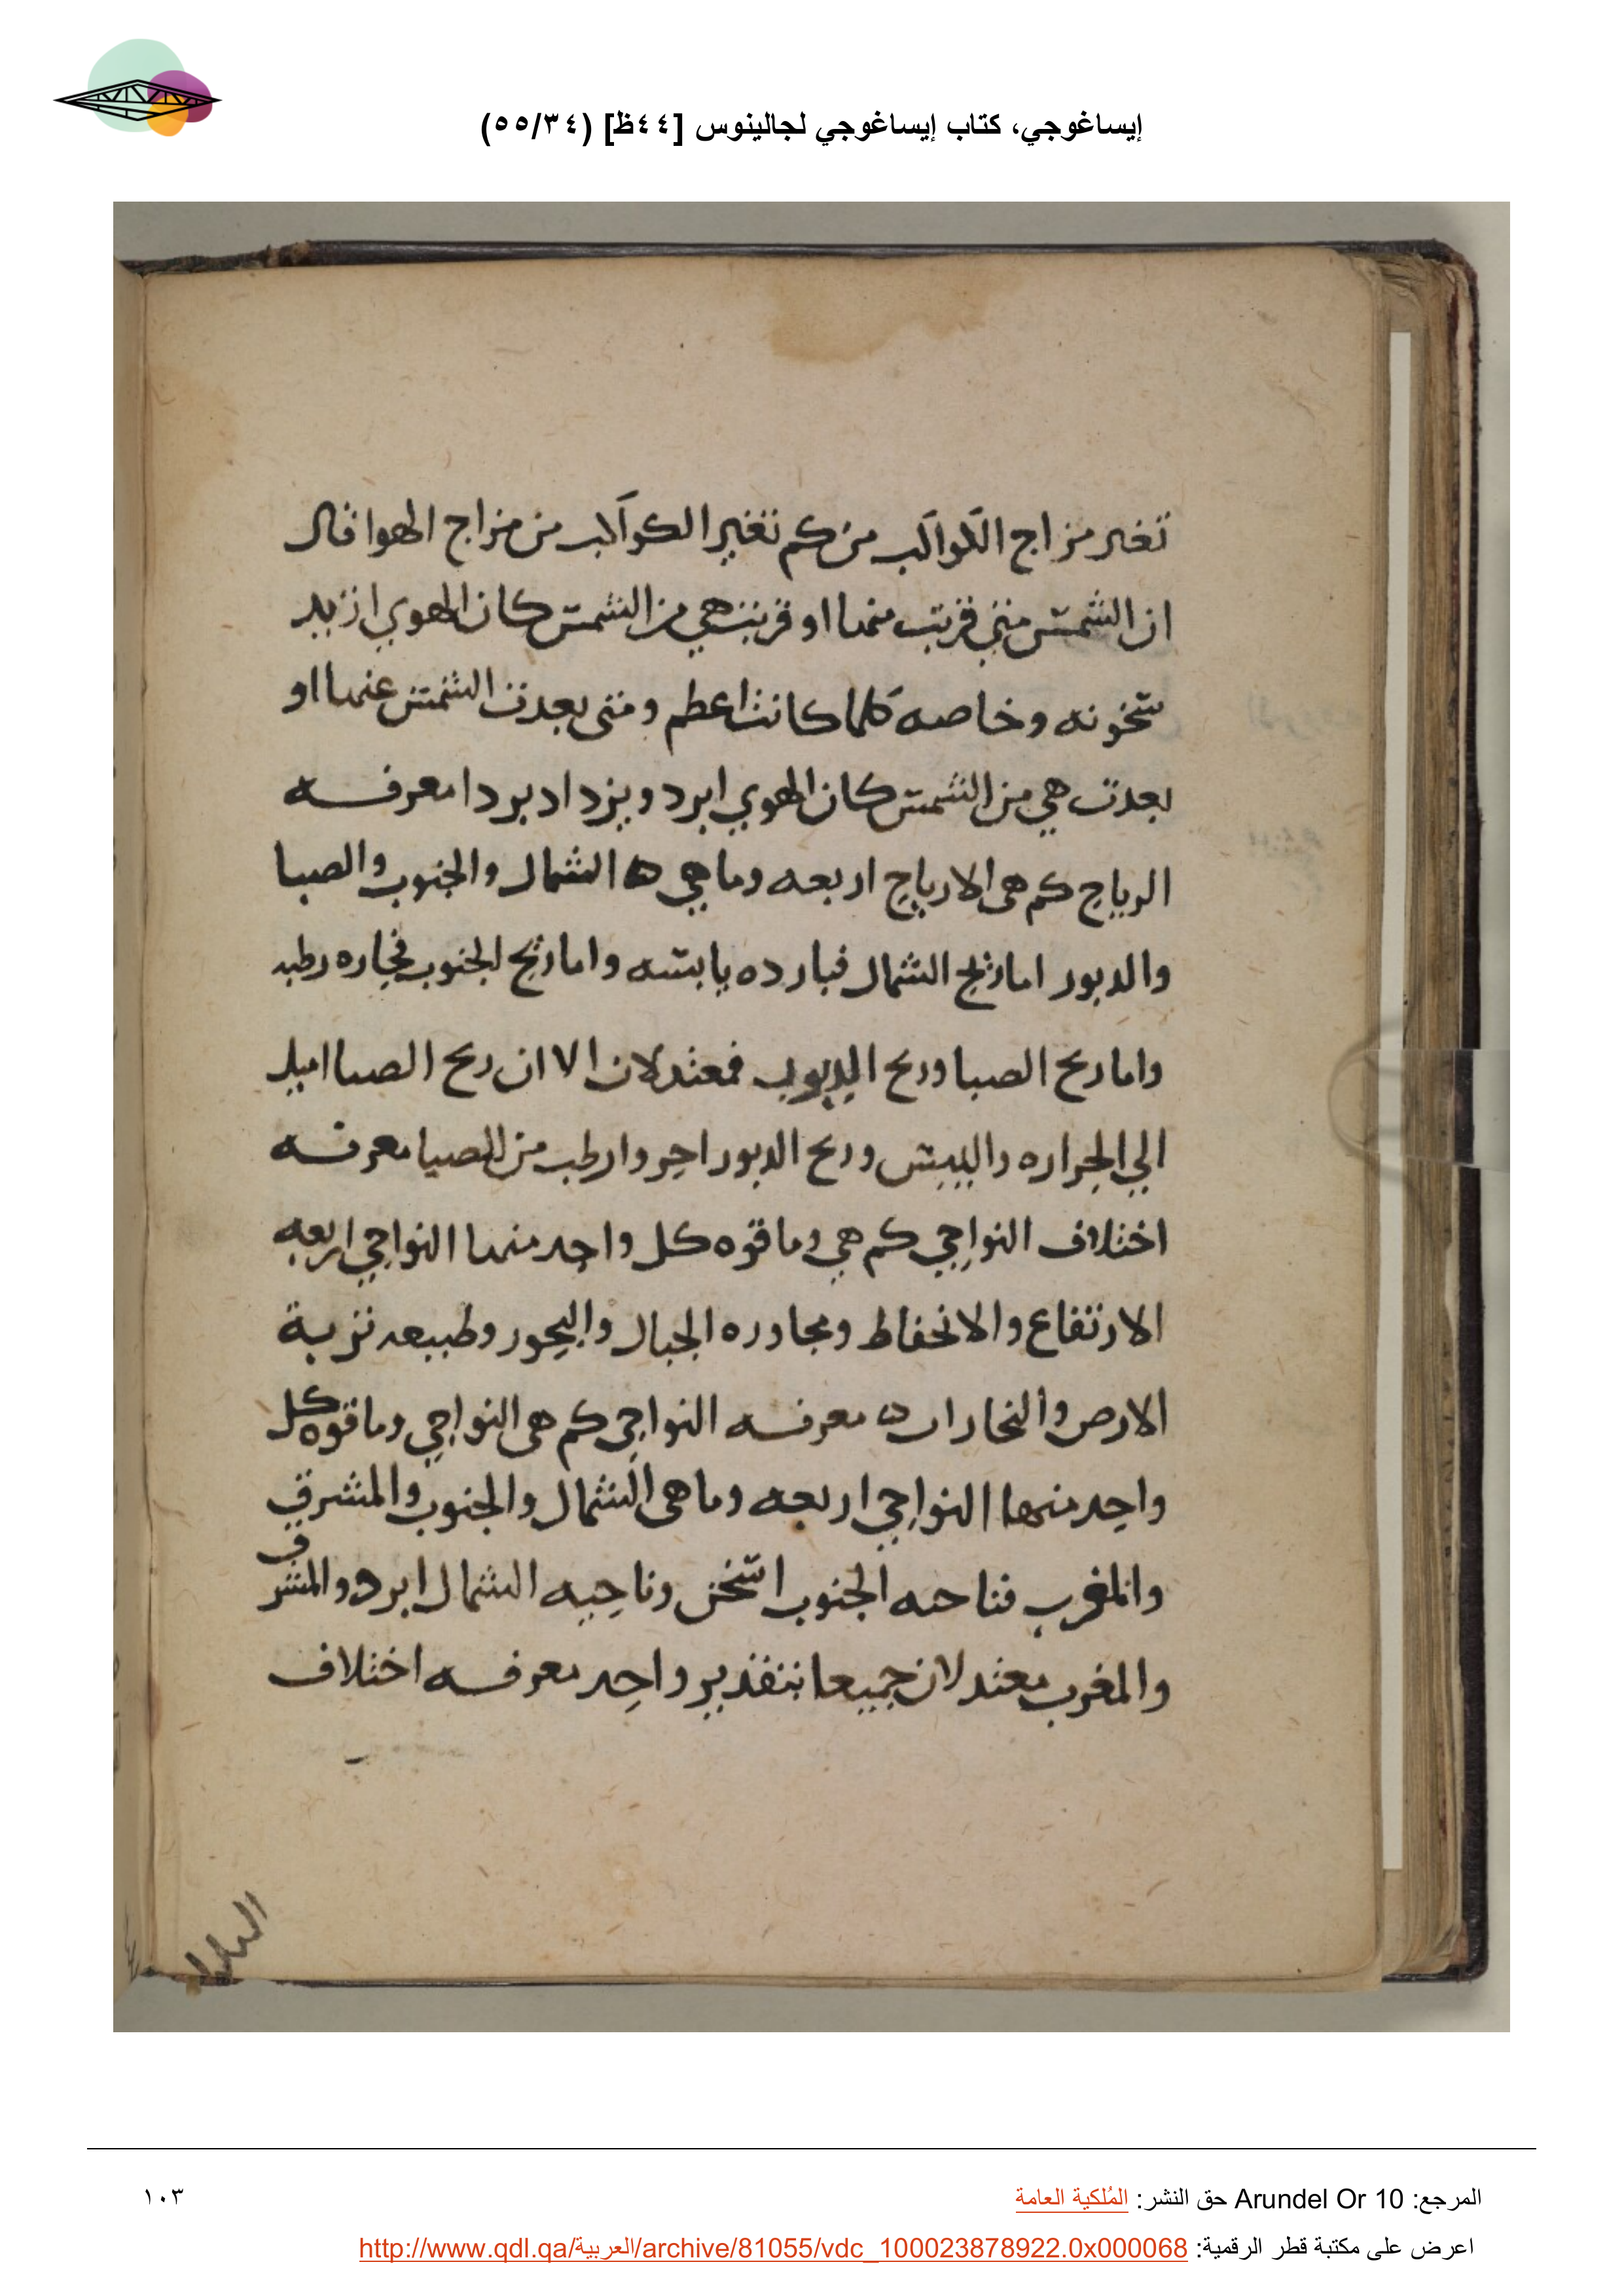 إيساغوجي، كتاب إيساغوجي لجالينوس [٤٤ظ] (٥٥/٣٤)
تغير مزاج الكواكب من كم تغير الكواكب من مزاج الهوا قال
ان الشمس متي قربت منها او قربت هي من الشمس كان الهوي ازيد
سخونه وخاصه كلما كانت اعظم ومتى بعدت الشمس عنها او
بعدت هي من الشمس كان الهوي ابرد ويزداد بردا معرفه
الرياح كم هى الارياح اربعه وما هي ه الشمال والجنوب والصبا
والدبور اما ريح الشمال فبارده يابسه واما ريح الجنوب فحاره رطبه
واما ريح الصبا وريح فمعتدلان الا ان ريح الصبا اميل
الي الحراره واليبس وريح الدبور احر وارطب من الصبا معرفه
اختلاف النواحي كم هي وما قوه كل واحد منها النواحي اربعه
الارتفاع والانخفاط ومجاوره الجبال والبحور وطبيعه تربة
الارض والبخارات ه معرفه النواحي كم هى النواحي وما قوه كل
واحد منها النواحي اربعه وما هى الشمال والجنوب والمشرق
والمغرب فناحيه الجنوب اسخن وناحيه الشمال ابرد والمشرق
والمغرب معتدلان جميعا بتقدير واحد معرفه اختلاف
البلدان
المرجع: Arundel Or 10 حق النشر: المُلكية العامة
١٠٣
اعرض على مكتبة قطر الرقمية: http://www.qdl.qa/العربية/archive/81055/vdc_100023878922.0x000068